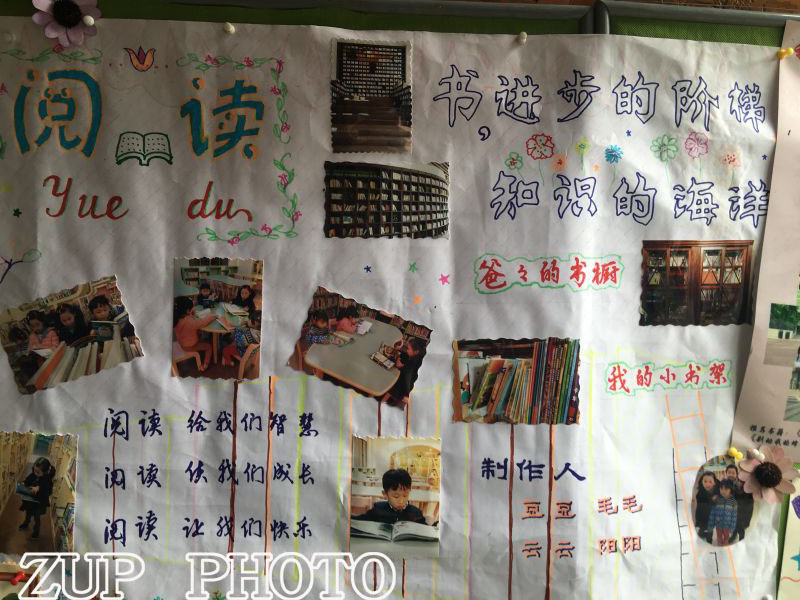 阅读
Yue du
书,进步的阶梯
知识的海洋
爸々的书橱
我的小书架
阅读 给我们智慧
阅读 使我们成长
阅读 让我们快乐
制作人
豆豆 毛毛
云云 阳阳
ZUP PHOTO